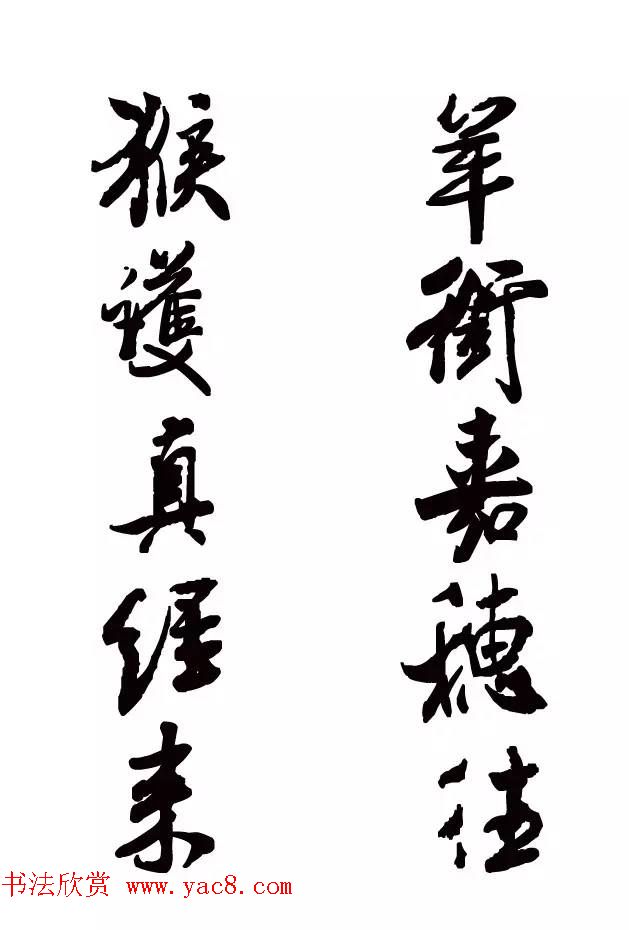 羊衔嘉穗往
猴護真經来
书法欣赏 www.yac8.com